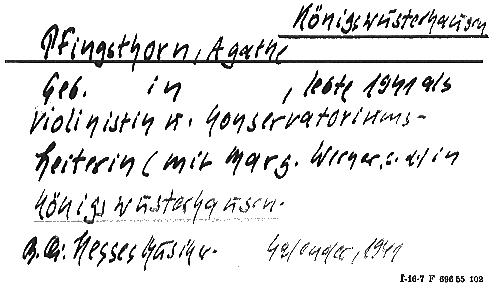 Königswusterhausen
Pfingsthorn, Agathe
Geb. in , lebte 1941 als
Violinistin u. Konservatoriums-
leiterin (mit Marg. Werner, s. d.) in
Königswusterhausen.
Hesses Musiker- Kalender, 1941
I-16-7 F 696 55 102